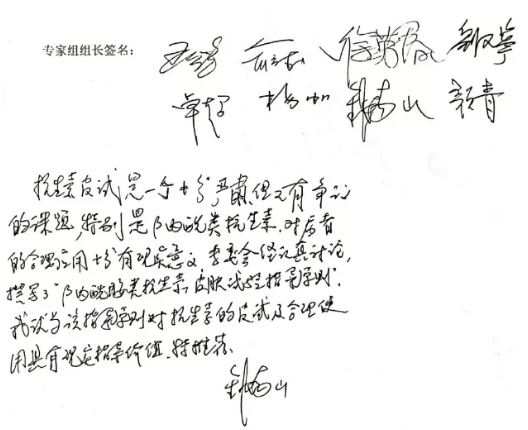 专家组组长签名：
卓超 杨帆 钟南山 颜青
抗生素皮试是一个十分严肃但又有争议
的课题，特别是β内酰类抗生素，对后者
的合理应用十分有现实意义 专委会经认真讨论，
撰写了“β内酰胺类抗生素皮肤试验指导原则”。
我认为该指导原则对抗生素的皮试及合理使
用具有现实指导价值，特推荐。
钟南山